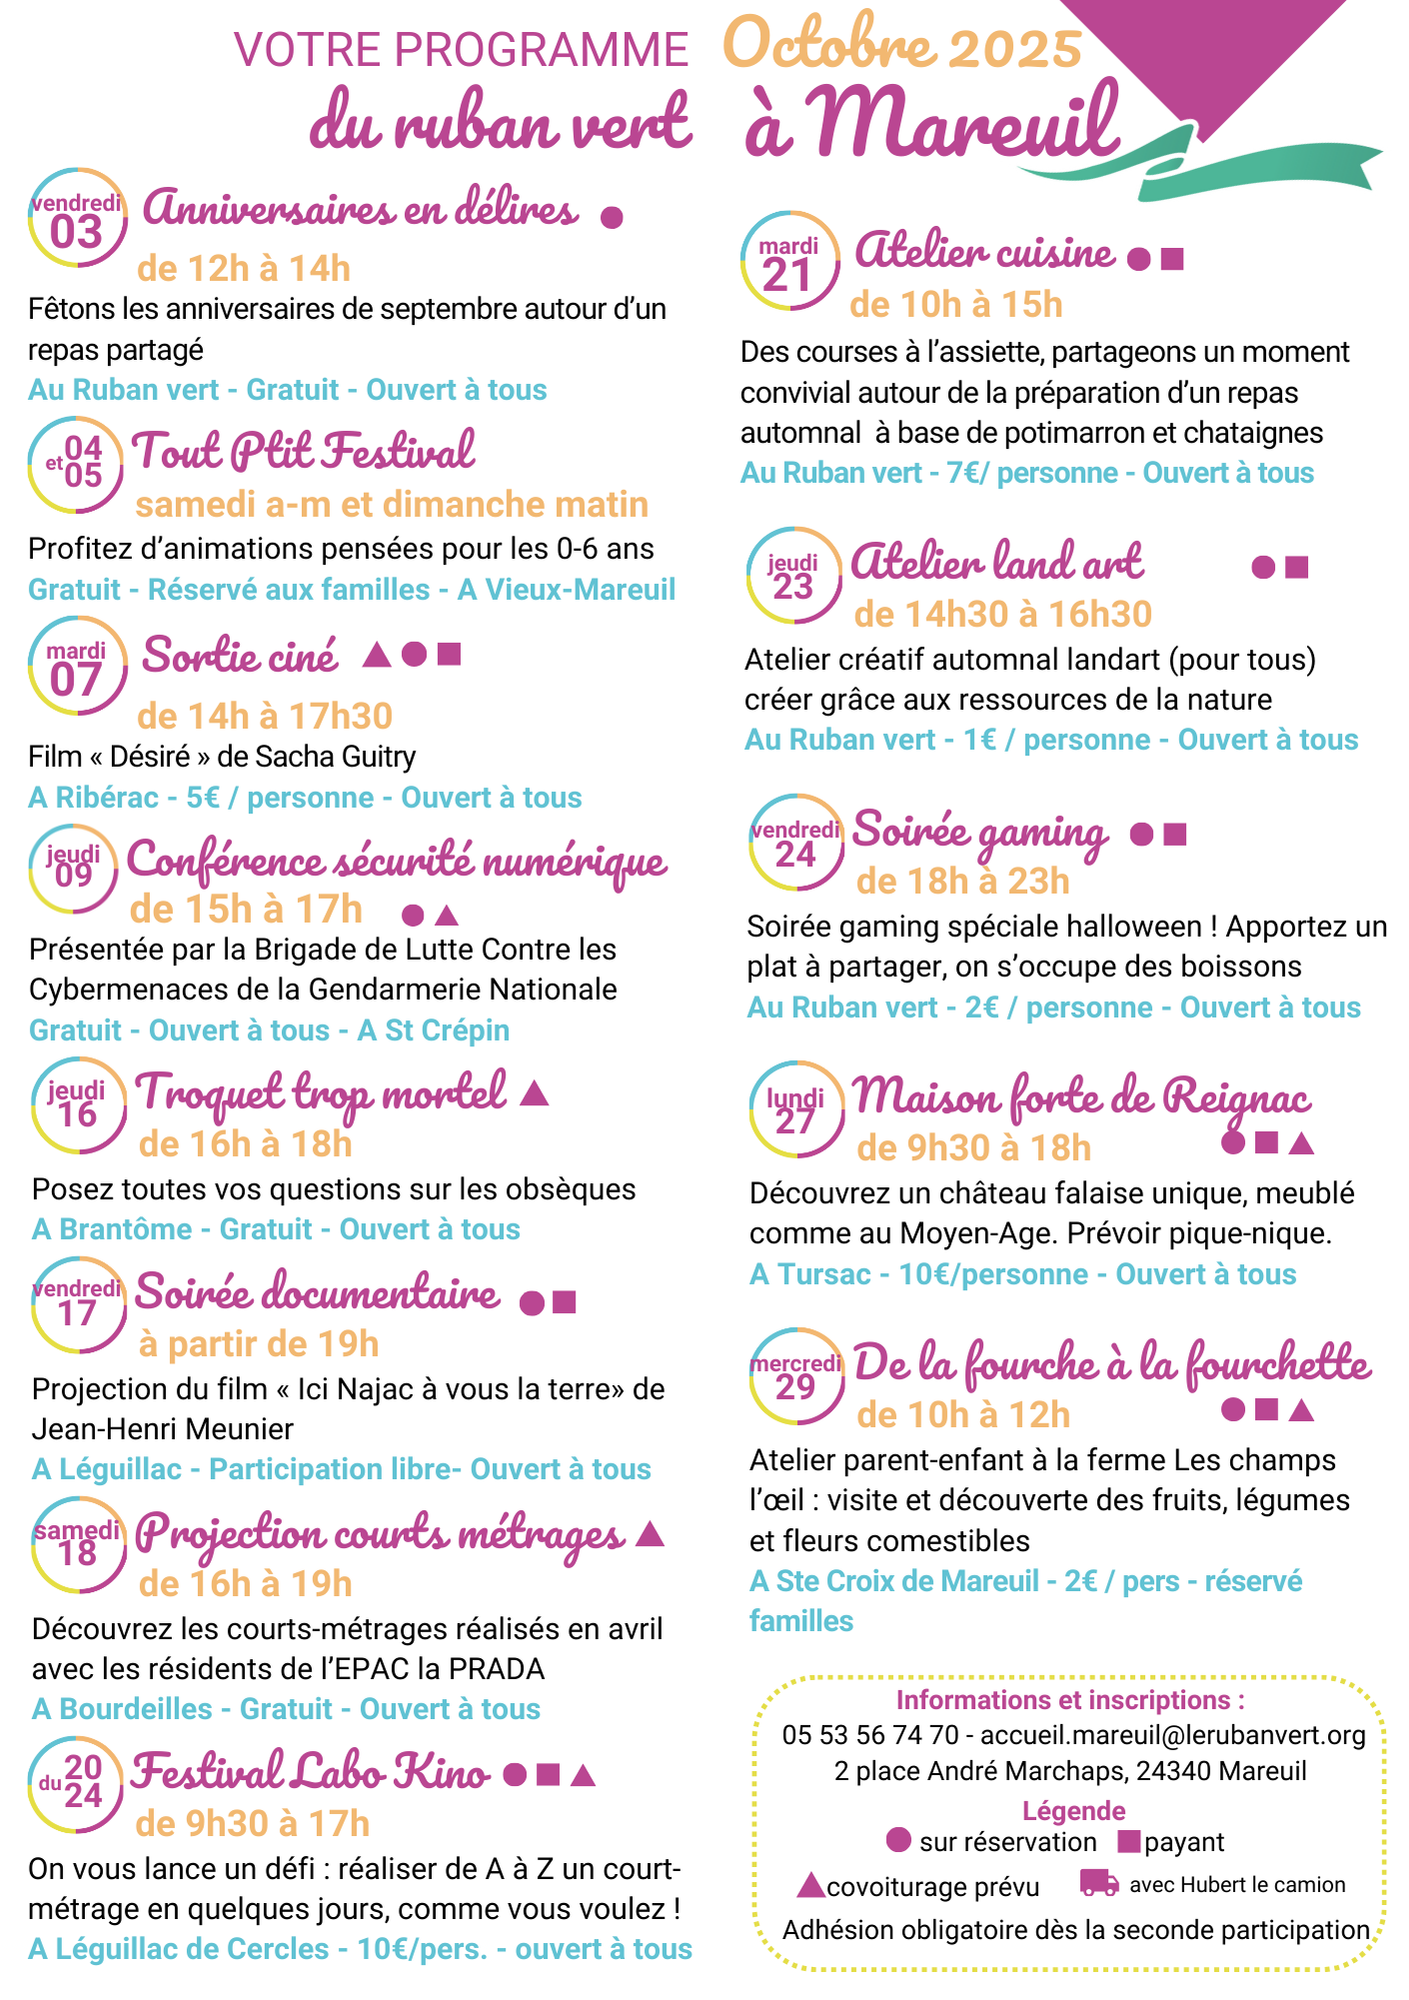 VOTRE PROGRAMME Octobre 2025
du ruban vert à Mareuil
vendredi
03
Anniversaires en délires
de 12h à 14h
Fêtons les anniversaires de septembre autour d’un
repas partagé
Au Ruban vert - Gratuit - Ouvert à tous
04
et 05
Tout Ptit Festival
samedi a-m et dimanche matin
Profitez d’animations pensées pour les 0-6 ans
Gratuit - Réservé aux familles - A Vieux-Mareuil
mardi
07
Sortie ciné
de 14h à 17h30
Film « Désiré » de Sacha Guitry
A Ribérac - 5€ / personne - Ouvert à tous
jeudi
09
Conférence sécurité numérique
de 15h à 17h
Présentée par la Brigade de Lutte Contre les
Cybermenaces de la Gendarmerie Nationale
Gratuit - Ouvert à tous - A St Crépin
jeudi
16
Troquet trop mortel
de 16h à 18h
Posez toutes vos questions sur les obsèques
A Brantôme - Gratuit - Ouvert à tous
vendredi
17
Soirée documentaire
à partir de 19h
Projection du film « Ici Najac à vous la terre» de
Jean-Henri Meunier
A Léguillac - Participation libre- Ouvert à tous
samedi
18
Projection courts métrages
de 16h à 19h
Découvrez les courts-métrages réalisés en avril
avec les résidents de l’EPAC la PRADA
A Bourdeilles - Gratuit - Ouvert à tous
du 20
24
Festival Labo Kino
de 9h30 à 17h
On vous lance un défi : réaliser de A à Z un court-
métrage en quelques jours, comme vous voulez !
A Léguillac de Cercles - 10€/pers. - ouvert à tous
mardi
21
Atelier cuisine
de 10h à 15h
Des courses à l’assiette, partageons un moment
convivial autour de la préparation d’un repas
automnal  à base de potimarron et chataignes
Au Ruban vert - 7€/ personne - Ouvert à tous
jeudi
23
Atelier land art
de 14h30 à 16h30
Atelier créatif automnal landart (pour tous)
créer grâce aux ressources de la nature
Au Ruban vert - 1€ / personne - Ouvert à tous
vendredi
24
Soirée gaming
de 18h à 23h
Soirée gaming spéciale halloween ! Apportez un
plat à partager, on s’occupe des boissons
Au Ruban vert - 2€ / personne - Ouvert à tous
lundi
27
Maison forte de Reignac
de 9h30 à 18h
Découvrez un château falaise unique, meublé
comme au Moyen-Age. Prévoir pique-nique.
A Tursac - 10€/personne - Ouvert à tous
mercredi
29
De la fourche à la fourchette
de 10h à 12h
Atelier parent-enfant à la ferme Les champs
l’œil : visite et découverte des fruits, légumes
et fleurs comestibles
A Ste Croix de Mareuil - 2€ / pers - réservé
familles
Informations et inscriptions :
05 53 56 74 70 - accueil.mareuil@lerubanvert.org
2 place André Marchaps, 24340 Mareuil
Légende
sur réservation payant
covoiturage prévu avec Hubert le camion
Adhésion obligatoire dès la seconde participation